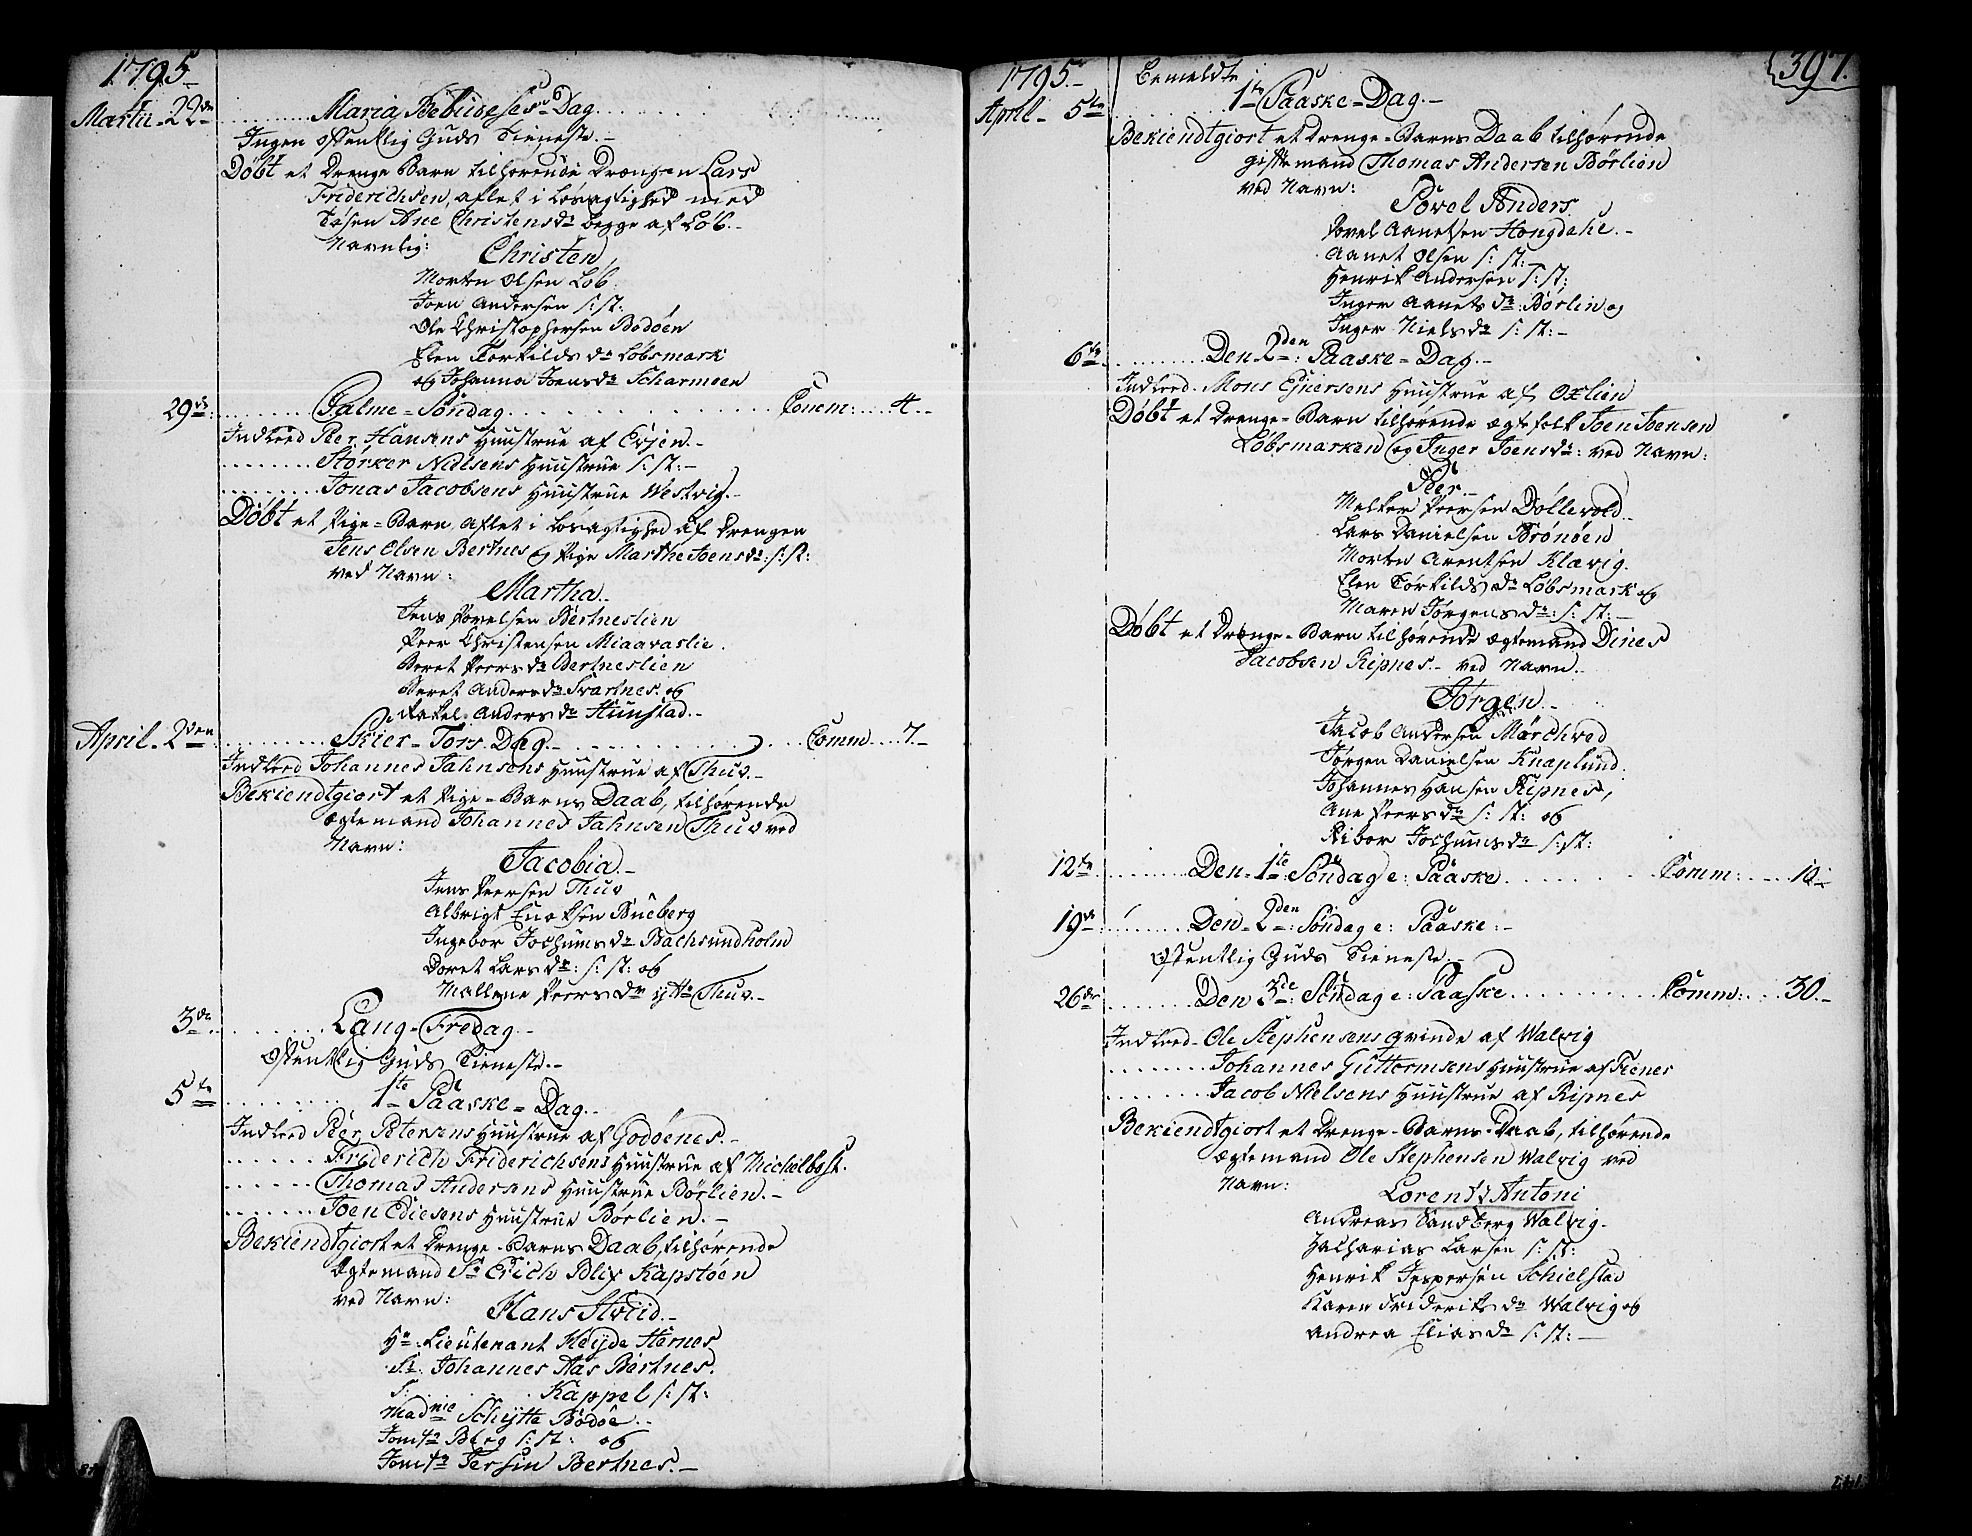 1795
Martii 22de Maria Bebudelses Dag
Ingen Ofentlig Guds Tieneste.
Døbt et Drenge Barn tilhørende Drængen Lars
Friderichsen, aflet i Løsagtighed med
Tøsen Ane Christensdr begge af Løb.
Navnlig:
Christen,
Morten Olsen Løb.
Joen Andersen s: st:
Ole Christophersen Bodøen
Elen Torkildsdr Løbsmark
og Johanna Joensdr Scharmoen
29de Palme-Søndag. Comm: 4.
Indleed Peer Hansens Huustrue af Evjen.
Størker Nielsens Huustrue s: st:
Jonas Jacobsens Huustrue Westvig.
Døbt et Pige-Barn, aflet i Løsagtighed af Drengen
Jens Olsen Bertnes og Pige Marthe Joensdr: s: st:
ved Navn:
Martha.
Jens Povelsen Bertneslien
Peer Christensen Miaavaslie.
Beret Peersdr Bertneslien
Beret Andersdr Svartnes. og
Rakel Andersdr Hunstad.
April 2den Skier-Tors Dag. Comm 7.
Indleed Johannes Jahnsens Huustrue af Thuv.
Bekiendtgiort et Pige-Barns Daab, tilhørende
Ægtemand Johannes Jahnsen Thuv ved
Navn:
Jacobia.
Jens Peersen Thuv
Albrigt Enoksen Bueberg
Ingebor Jochumsdr Bachsundholm
Doret Larsdr: s: st: og
Mallene Peersdr ytte Thuv.
3de Lang-Fredag.
Ofentlig Guds Tieneste.
5te 1te Paaske-Dag.
Indleed Peer Petersens Huustrue af Godøenes.
Friderich Friderichsens Huustrue af Nichelbost.
Thomas Andersens Huustrue Børlien.
Joen Ediesens Huustrue Børlien.
Bekiendtgiort et Drenge-Barns Daab, tilhørende
Ægtemand Sr Erich Blix Kapstøen
ved Navn:
Hans Strud.
Hr Lieutenant Heyde Hernes
Sr. Johannes Aas Bertnes.
S: Kappel s: st:
Madme Schytte Bodøe.
Jomfr Berg s: st: og
Jomfr Jersin Bertnes.
1795 Bemeldte 397.
April 5te 1te Paaske-Dag.
Bekiendtgiort et Drenge-Barns Daab tilhørende
giftemand Thomas Andersen Børlien
ved Navn:
Povel Anders
Povel Aanetsen Hongdahl.
Aanet Olsen s: st:
Henrik Andersen s: st:
Inger Aanetsdr: Børlien og
Inger Nielsdr s: st:
6te Den 2den: Paaske-Dag.
Indleed Mons Ejnersens Huustrue af Oxlien
Døbt et Drenge-Barn tilhørende Ægtefolk Joen Joensen
Løbsmarken og Inger Joensdr: ved Navn:
Peer
Melker Peersen Dollevold
Lars Danielsen Brønøen
Morten Arentsen Klævig.
Elen Torkildsdr Løbsmark og
Maren Jørgensdr: s: st:
Døbt et Drænge-Barn tilhørende Ægtemand Dines
Jacobsen Ripnes. ved Navn.
Jørgen.
Jacob Andersen Mørchved
Jørgen Danielsen Knaplund
Johannes Hansen Ripnes,
Ane Peersdr s: st: og
Ribor Jochumsdr s: st:
12te Den 1te Søndag e: Paaske. Comm: 10
19de Den 2den: Søndag e: Paaske:
Ofentlig Guds Tieneste.
26de Den 3de: Søndag e: Paaske. Comm: 30.
Indleed Ole Stephensens Qvinde af Walvig
Johannes Guttormsens Huustrue af Fenes
Jacob Nielsens Huustrue af Ripnes
Bekiendtgiort et Drenge-Barns Daab, tilhørende
Ægtemand Ole Stephensen Walvig ved
Navn:
Lorentz Antoni
Andreas Sandberg Walvig.
Zacharias Larsen s: st:
Henrik Jespersen Schielstad
Karen Frideriksdr Walvig og
Andrea Eliasdr s: st: